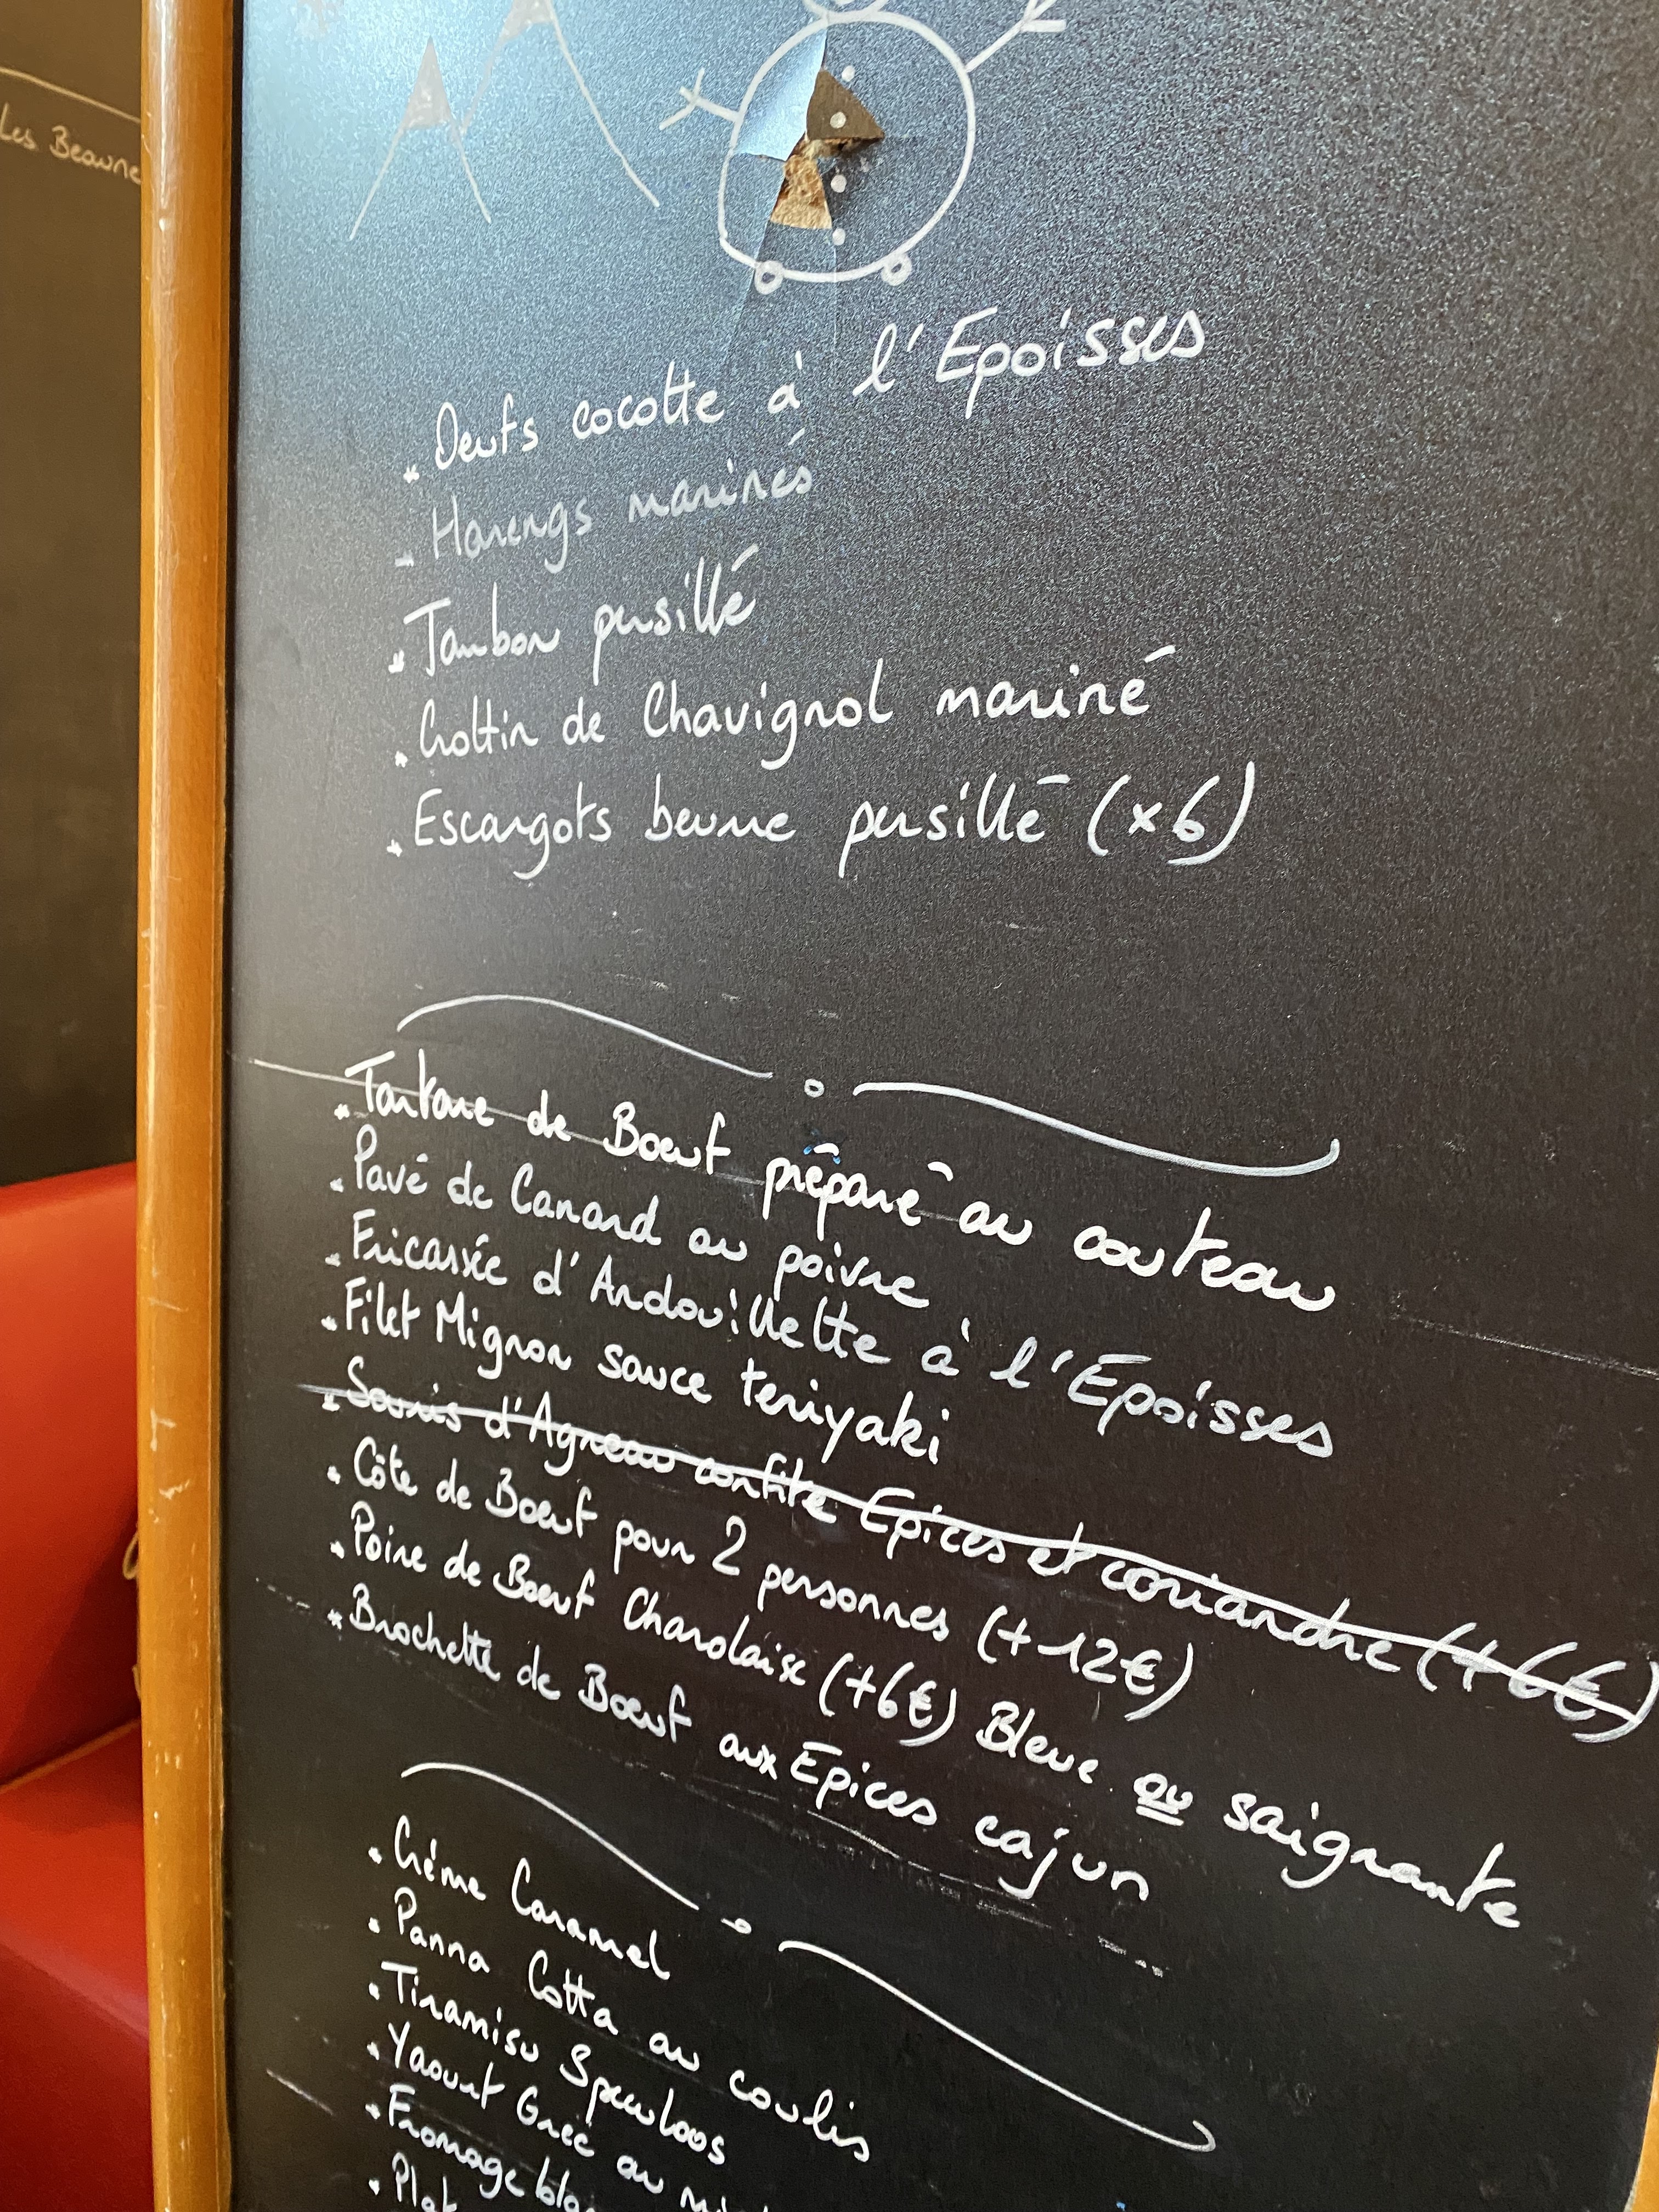 Les Beaune
Oeufs cocotte à l'Epoisses
Harengs marinés
Jambon persillé
Crottin de Chavignol mariné
Escargots beurre persillé (x6)
Tartare de Boeuf préparé au couteau
Pavé de Canard au poivre
Fricassée d'Andouillette à l'Epoisses
Filet Mignon sauce teriyaki
Souris d'Agneau confite Epices et coriandre (+6€)
Côte de Boeuf pour 2 personnes (+12€)
Poire de Boeuf Charolaise (+6€) Bleue ou saignante
Brochette de Boeuf aux Epices cajun
Crème Caramel
Panna Cotta au coulis
Tiramisu Speculoos
Yaourt Grec au mi
Fromage blan
Plat